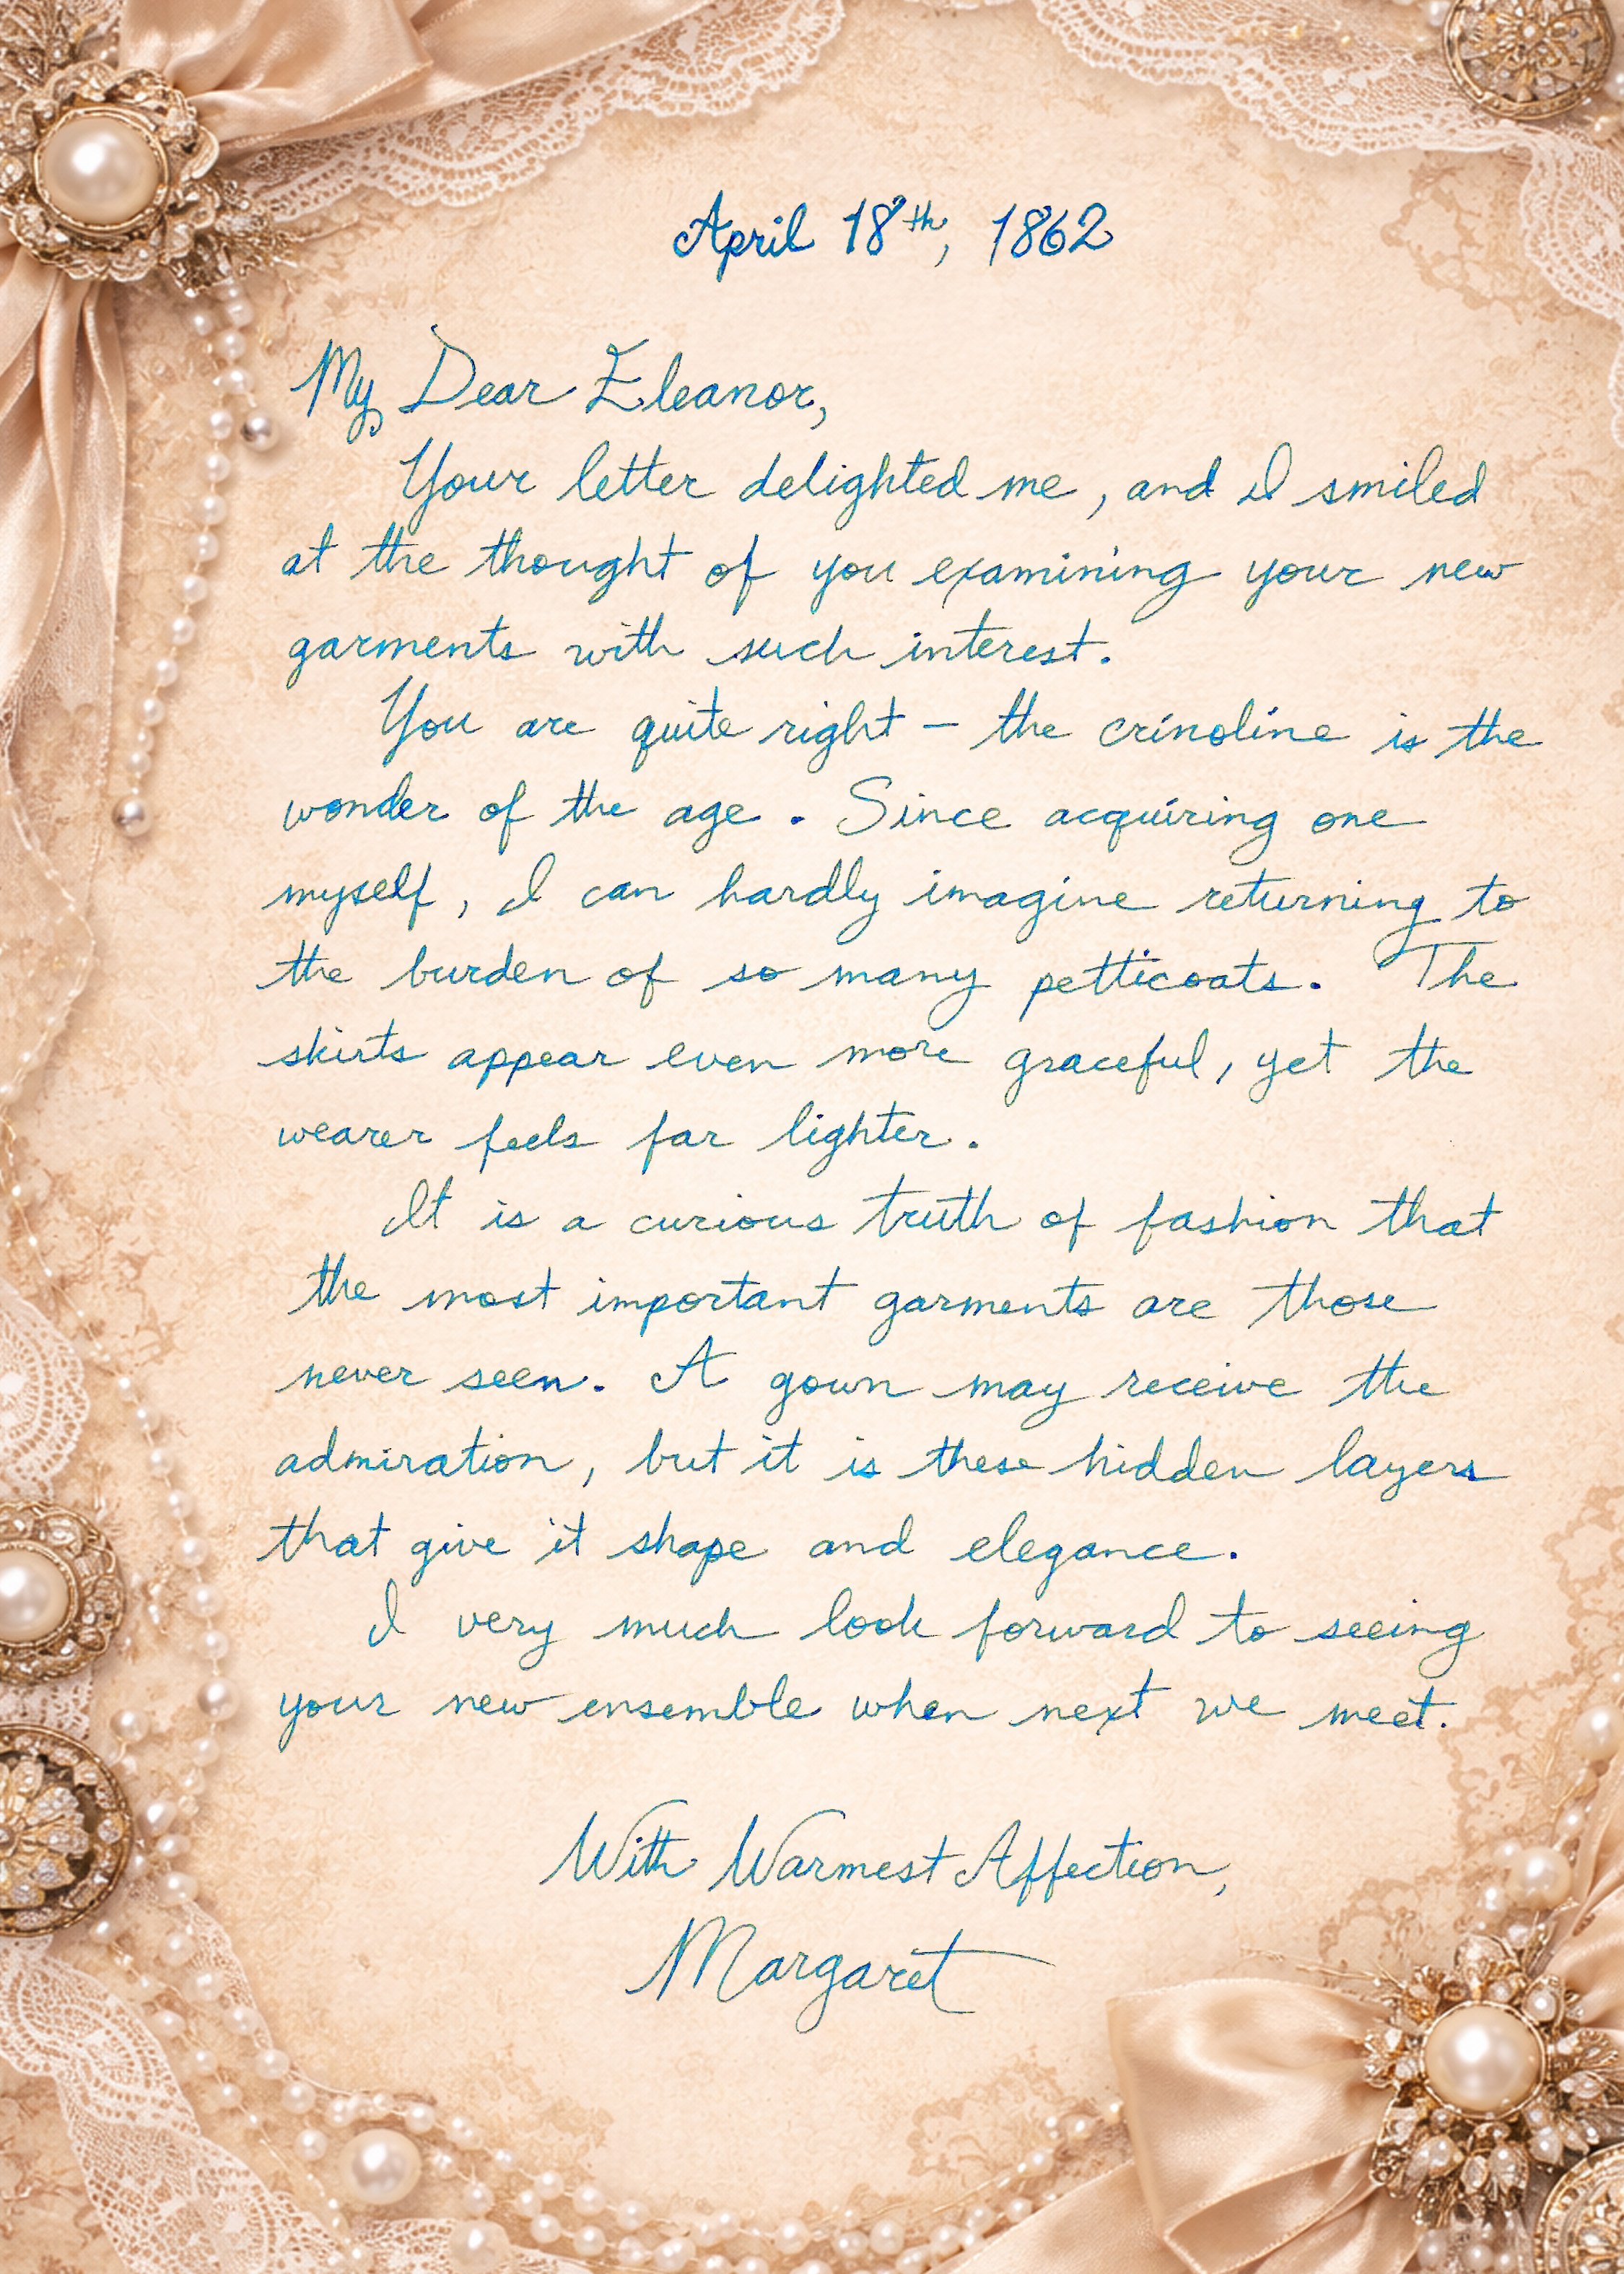 April 18th, 1862
My Dear Eleanor,
Your letter delighted me, and I smiled
at the thought of you examining your new
garments with such interest.
You are quite right – the crinoline is the
wonder of the age. Since acquiring one
myself, I can hardly imagine returning to
the burden of so many petticoats. The
skirts appear even more graceful, yet the
wearer feels far lighter.
It is a curious truth of fashion that
the most important garments are those
never seen. A gown may receive the
admiration, but it is these hidden layers
that give it shape and elegance.
I very much look forward to seeing
your new ensemble when next we meet.
With Warmest Affection,
Margaret